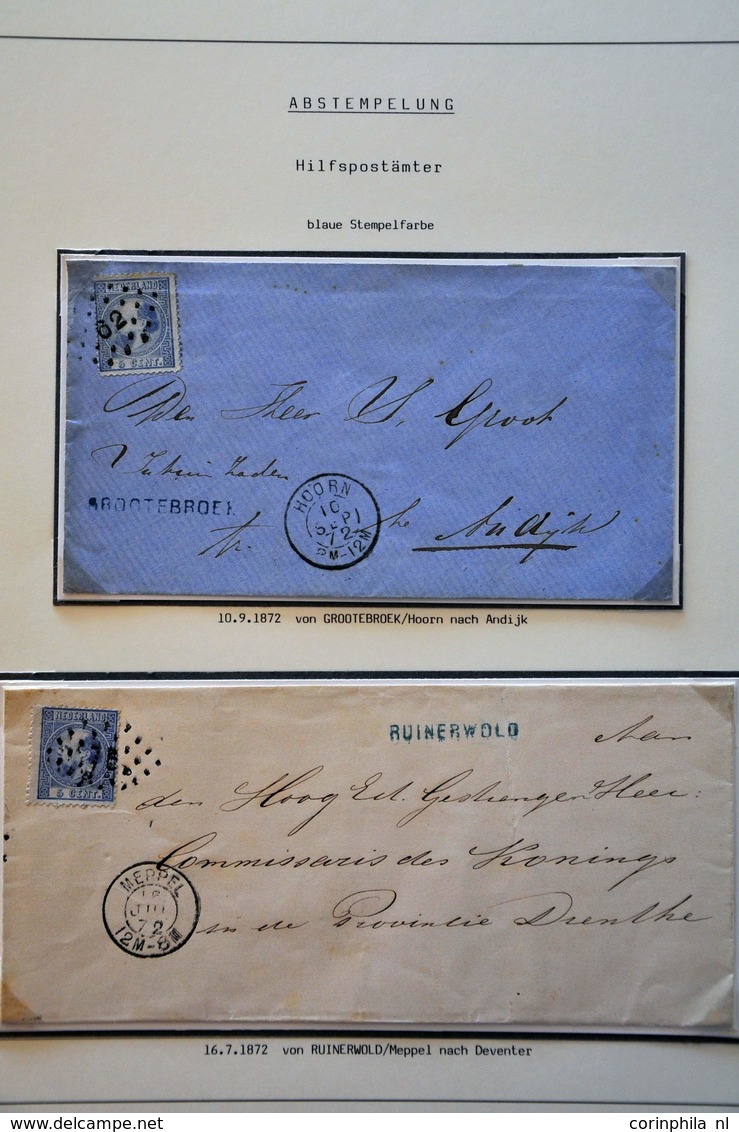 ABSTEMPELUNG
Hilfspostämter
blaue Stempelfarbe
NEDERLAND
5 CENT.
Den Heer S. Groot
Zaden
GROOTEBROEK
HOORN
10
SEP
72
8M-12M
te Andijk
10.9.1872 von GROOTEBROEK/Hoorn nach Andijk
NEDERLAND
5 CENT.
RUINERWOLD
Aan
den Hoog Ed. Gestrengen Heer
Commissaris des Konings
in de Provintie Drenthe
MEPPEL
16
JUL
72
12M-8M
16.7.1872 von RUINERWOLD/Meppel nach Deventer
www.delcampe.net
corinphila nl